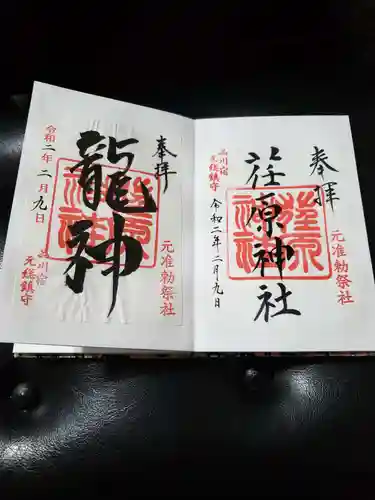 奉拝
元准勅祭社
荏原神社
品川宿
元総鎮守
令和二年二月九日
奉拝
元准勅祭社
龍神
令和二年二月九日
品川宿
元総鎮守